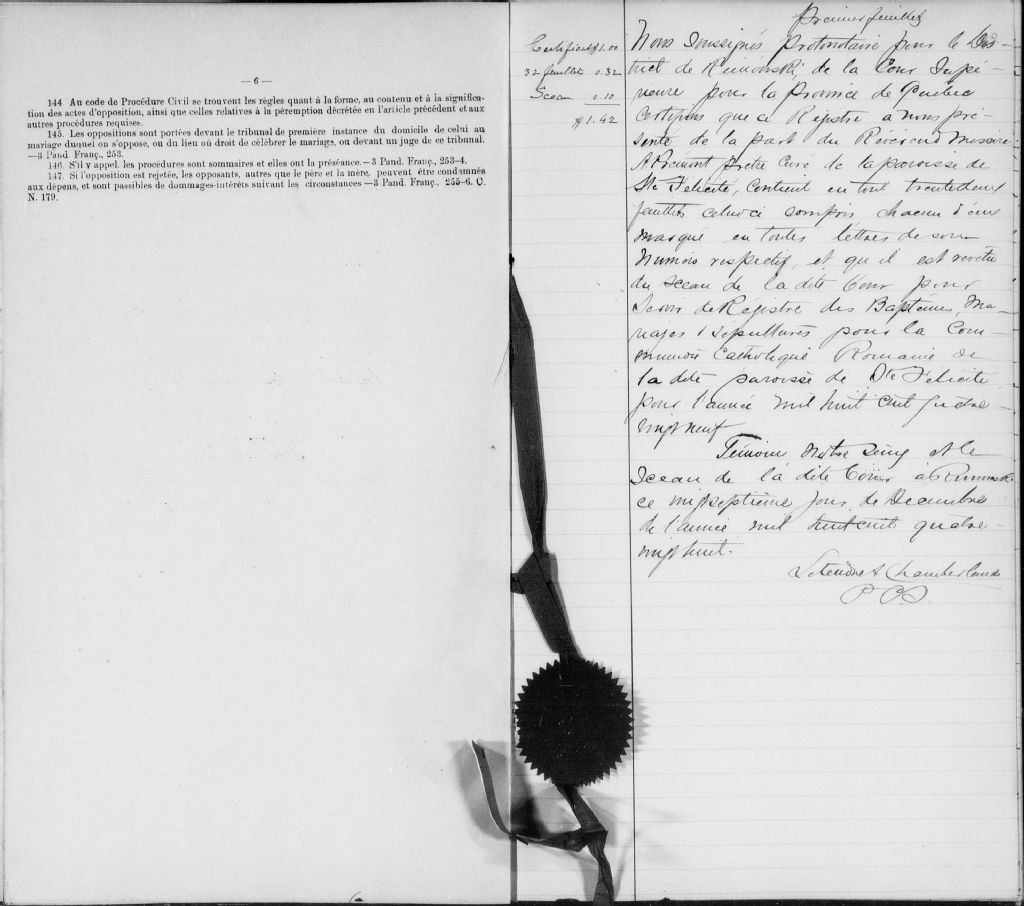 — 6 —
144 Au code de Procédure Civil se trouvent les règles quant à la forme, au contenu et à la significa-
tion des actes d'opposition, ainsi que celles relatives à la péremption décrétée en l'article précédent et aux
autres procédures requises.
145. Les oppositions sont portées devant le tribunal de première instance du domicile de celui au
mariage duquel on s'oppose, ou du lieu où droit de célébrer le mariage, ou devant un juge de ce tribunal.
—3 Pand. Franç., 253.
146. S'il y appel, les procédures sont sommaires et elles ont la préséance.—3 Pand. Franç., 253-4.
147. Si l'opposition est rejetée, les opposants, autres que le père et la mère, peuvent être condamnés
aux dépens, et sont passibles de dommages-intérêts suivant les circonstances—3 Pand. Franç., 255-6. C.
N. 179.
Certificat $1.00
32 feuillets 0.32
Sceau 0.10
$1.42
Premier feuillet
Nous Soussignés Protonotaire pour le Dis-
trict de Rimouski, de la Cour Supé-
rieure pour la Province de Québec
Certifions que ce Régistre à nous pré-
senté de la part du Révérend Messire
Prêtre Curé de la paroisse de
Ste Félicité, Contient en tout trente deux
feuillets celui ci compris chacun d'eux
marqué en toutes lettres de son
Numéro respectif, et qu'il est revêtu
du Sceau de la dite Cour pour
Servir de Régistre des Baptêmes, Ma-
riages & sépultures pour la Com-
munion Catholique Romaine de
la dite paroisse de Ste Félicité
pour l'année mil huit cent quatre-
vingt neuf
Témoin Notre Seing et le
Sceau de la dite Cour à Rimouski
ce vingt septième jour de Décembre
de l'année mil huit cent quatre-
vingt huit.
Letendre & Chamberland
P. C. S.